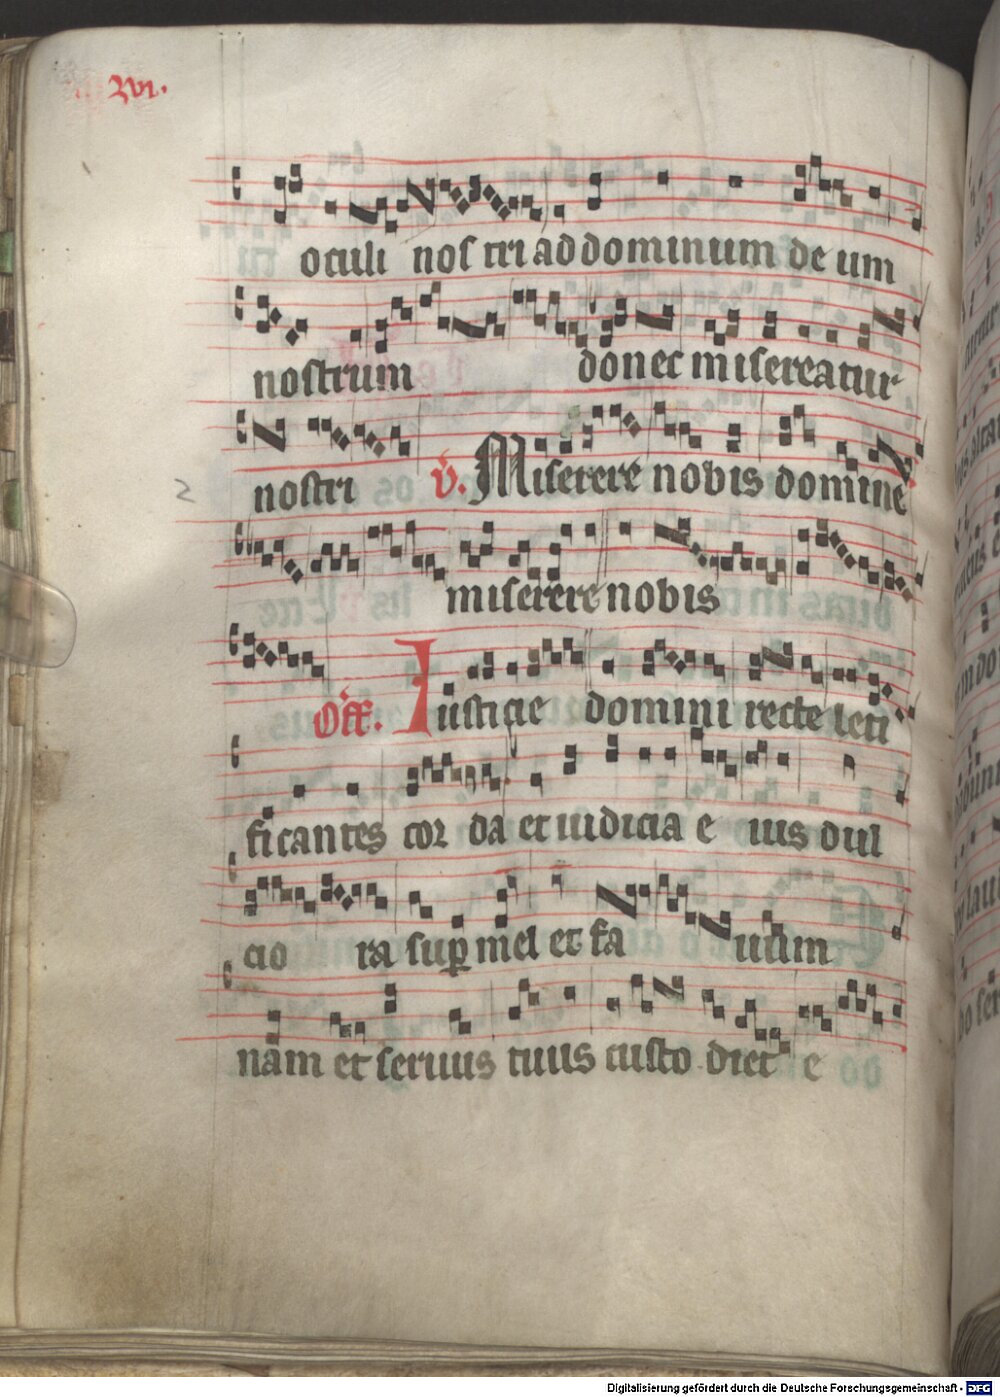 xvi.
oculi nostri ad dominum deum
nostrum donec misereatur
nostri v. Miserere nobis domine
2
miserere nobis
Off. Iusticie domini recte leti
ficantes cor da et iudicia e ius dul
cio ra sup mel et fa uum
nam et seruus tuus custo diet e
Digitalisierung gefördert durch die Deutsche Forschungsgemeinschaft - DFG